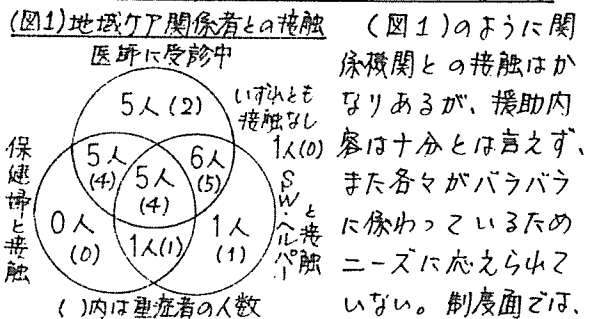 (図1)地域ケア関係者との接触
医師に受診中
5人(2)
いずれとも
接触なし
1人(0)
5人
(4)
6人
(5)
5人
(4)
保健婦と接触
0人
(0)
1人(1)
1人
(1)
SW・ヘルパー
と接触
( )内は重症者の人数
(図1)のように関
係機関との接触はか
なりあるが、援助内
容は十分とは言えず、
また各々がバラバラ
に係わっているため
ニーズに応えられて
いない。制度面では、